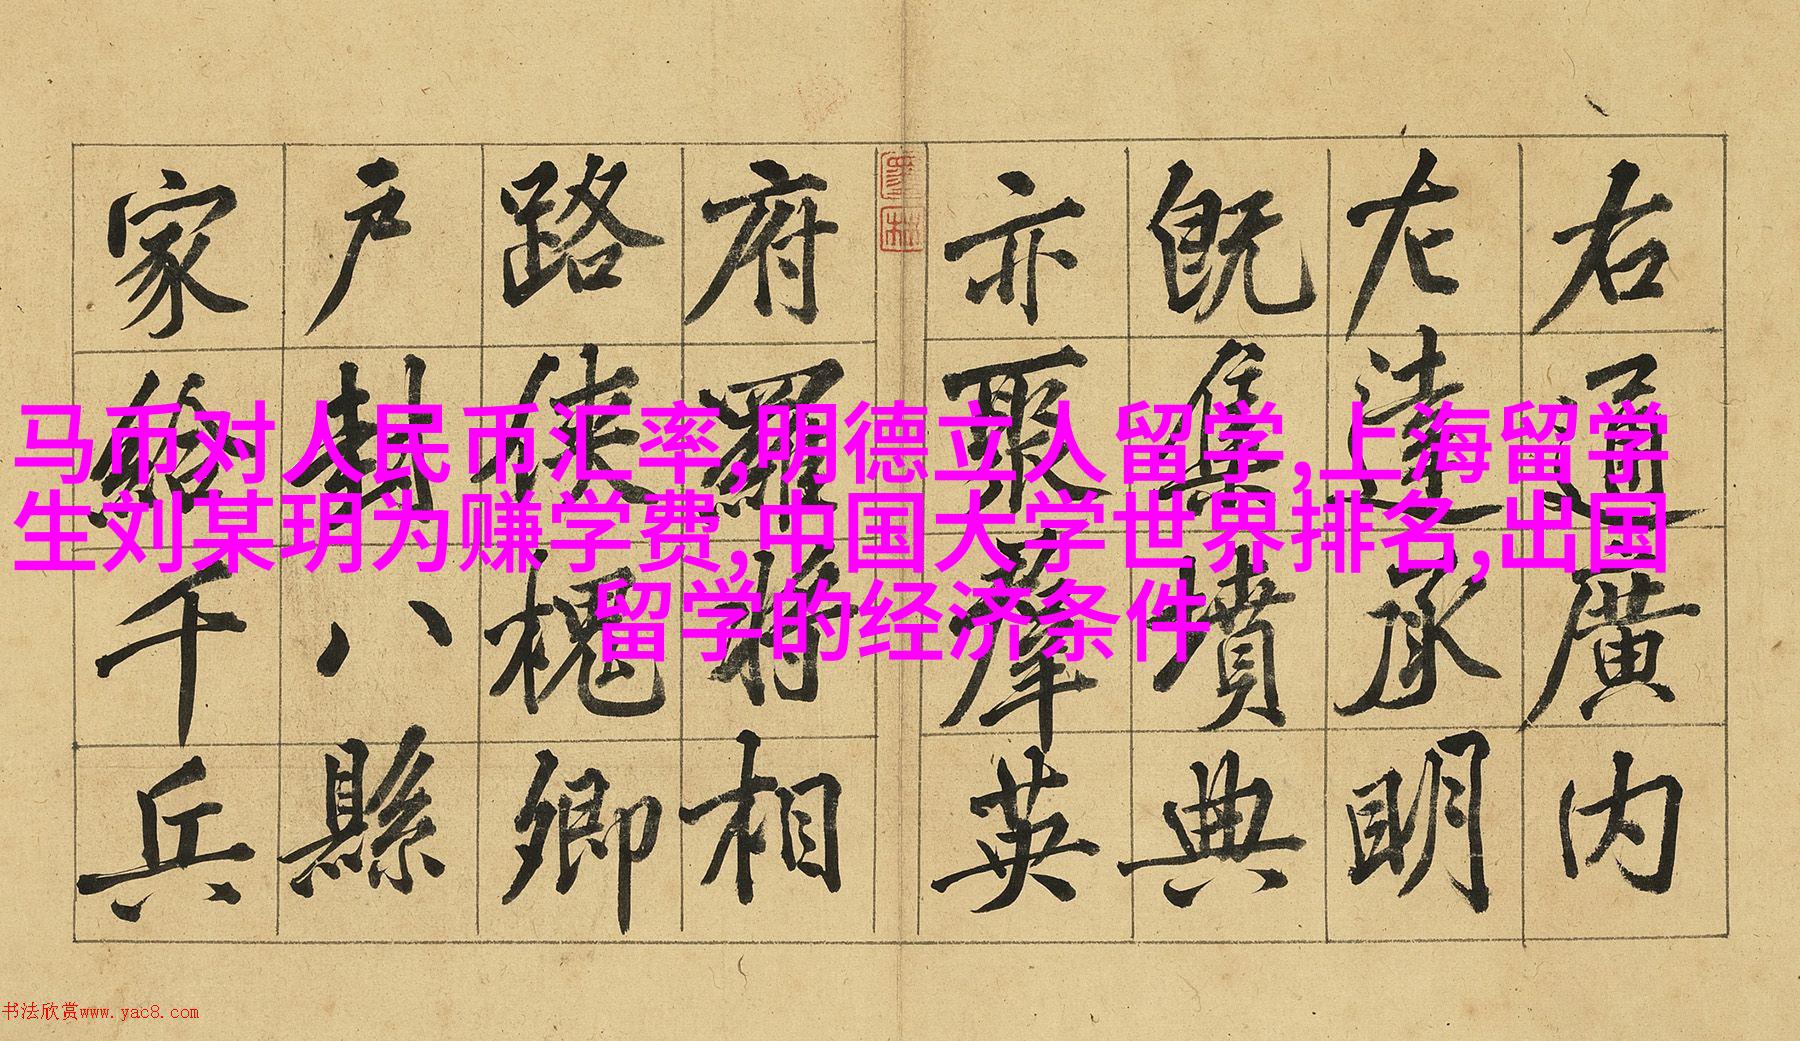 右通廣内
左達承明
既集墳典
亦聚羣英
府羅将相
路俠槐卿
户封八縣
家給千兵
马币对人民币汇率,明德立人留学,上海留学
生刘某玥为赚学费,中国大学世界排名,出国
留学的经济条件
书法欣赏www.yac8.com